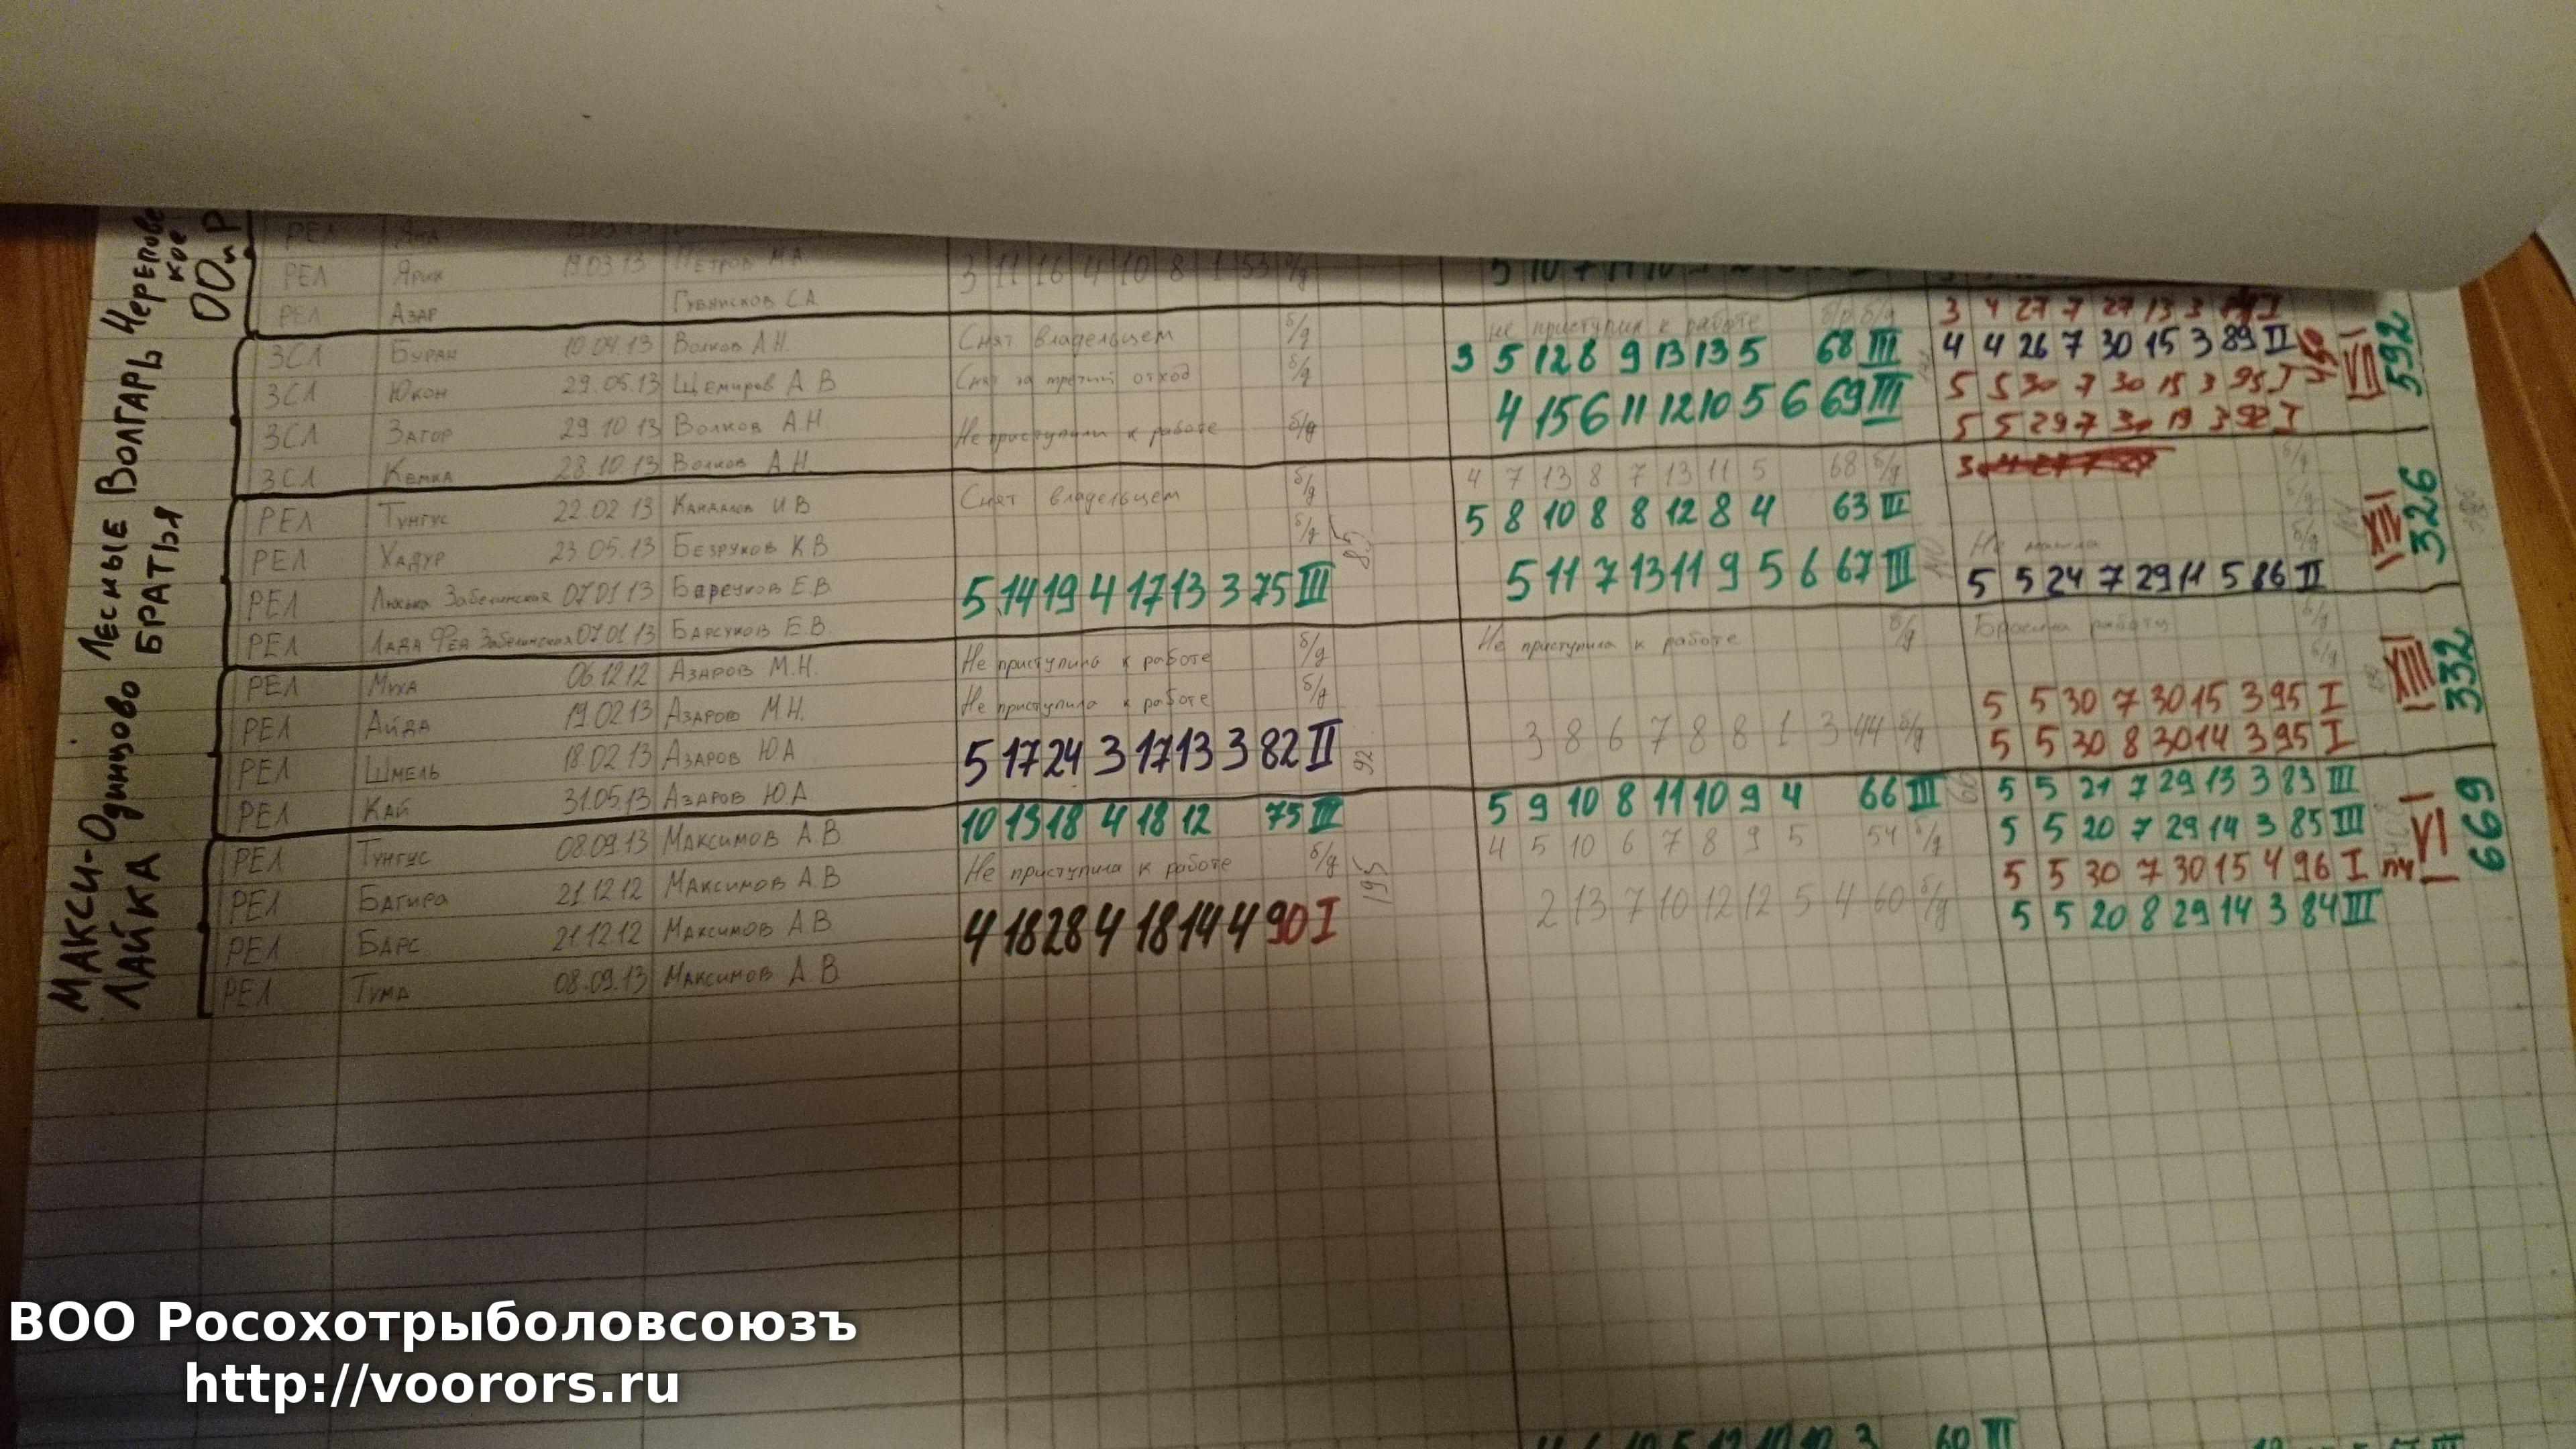 РЕЛ Яна
РЕЛ Ярик 19.03.13 Петров М.А. 3 11 16 4 10 8 1 53 б/д
РЕЛ Азар
ЗСЛ Буран 10.04.13 Волков А.Н. Снят владельцем б/д не приступил к работе б/р б/д 3 4 27 7 27 13 3
ЗСЛ Юкон 29.05.13 Щемиров А.В Снят за третий отход б/д 3 5 12 8 9 13 13 5 68 III 4 4 26 7 30 15 3 89 II
ЗСЛ Загор 29.10.13 Волков А.Н. Не приступили к работе б/д 4 15 6 11 12 10 5 6 69 III 5 5 30 7 30 15 3 95 I
ЗСЛ Кемка 28.10.13 Волков А.Н. 5 5 29 7 30 3 92 I
VII 592
РЕЛ Тунгус 22.02.13 И.В Снят владельцем б/д 4 7 13 8 7 13 11 5 68 б/д б/д
РЕЛ Хадур 23.05.13 Безруков К.В б/д 5 8 10 8 8 12 8 4 63 III
РЕЛ Люлька Забелинская 07.01.13 Барсуков Е.В. 5 14 19 4 17 13 3 75 III 85 5 11 7 13 11 9 5 6 67 III б/д
РЕЛ Лада Фея Забелинская 07.01.13 Барсуков Е.В 5 5 24 7 29 11 5 86 II
XIV 326
РЕЛ Муха 06.12.12 Азаров М.Н. Не приступила к работе б/д Не приступила к работе б/д Бросила работу б/д
РЕЛ Айда 19.02.13 Азаров М.Н. Не приступила к работе б/д б/д
РЕЛ Шмель 18.02.13 Азаров Ю.А 5 17 24 3 17 13 3 82 II 92 3 8 6 7 8 8 1 3 44 б/д 5 5 30 7 30 15 3 95 I
РЕЛ Кай 31.05.13 Азаров Ю.А 5 5 30 8 30 14 3 95 I
XIII 332
РЕЛ Тунгус 08.09.13 Максимов А.В. 10 13 18 4 18 12 75 III 5 9 10 8 11 10 9 4 66 III 5 5 21 7 29 13 3 83 III
РЕЛ Багира 21.12.12 Максимов А.В Не приступила к работе б/д 4 5 10 6 7 8 9 5 54 б/д 5 5 20 7 29 14 3 85 III
РЕЛ Барс 21.12.12 Максимов А.В 4 18 28 4 18 14 4 90 I 195 2 13 7 10 12 12 5 4 60 б/д 5 5 30 7 30 15 4 96 I пч
РЕЛ Тума 08.09.13 Максимов А.В. 5 5 20 8 29 14 3 84 III
VI 669
ОО и Р
Волгарь
Лесные
Братья
Одинцово
Макси-
Лайка
ВОО Росохотрыболовсоюзъ
http://voorors.ru